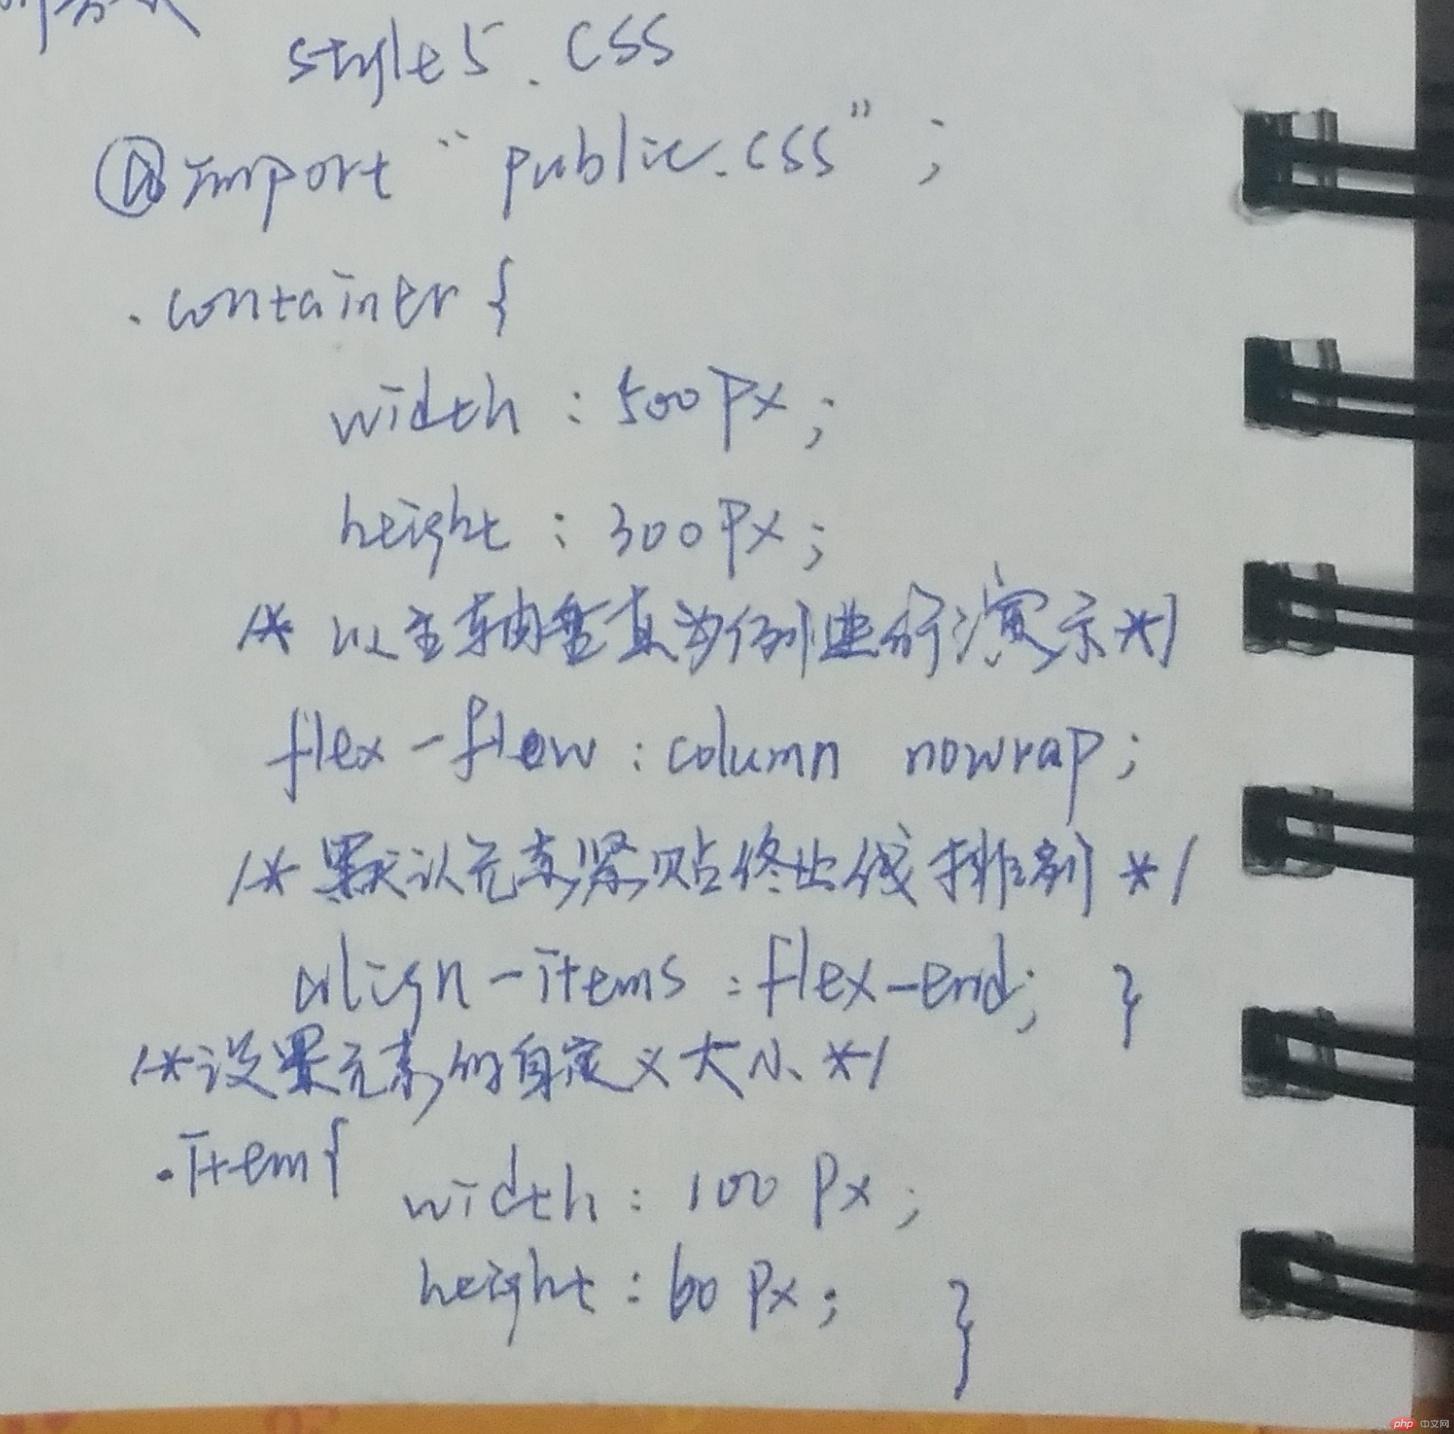 style5.css
@import "public.css";
.container{
width:500px;
height:300px;
/* 以主轴垂直为例进行演示*/
flex-flow:column nowrap;
/*默认元素紧贴终止线排列*/
align-items:flex-end; }
/*设置元素的自定义大小*/
.item{
width:100px;
height:60px; }
php 中文网